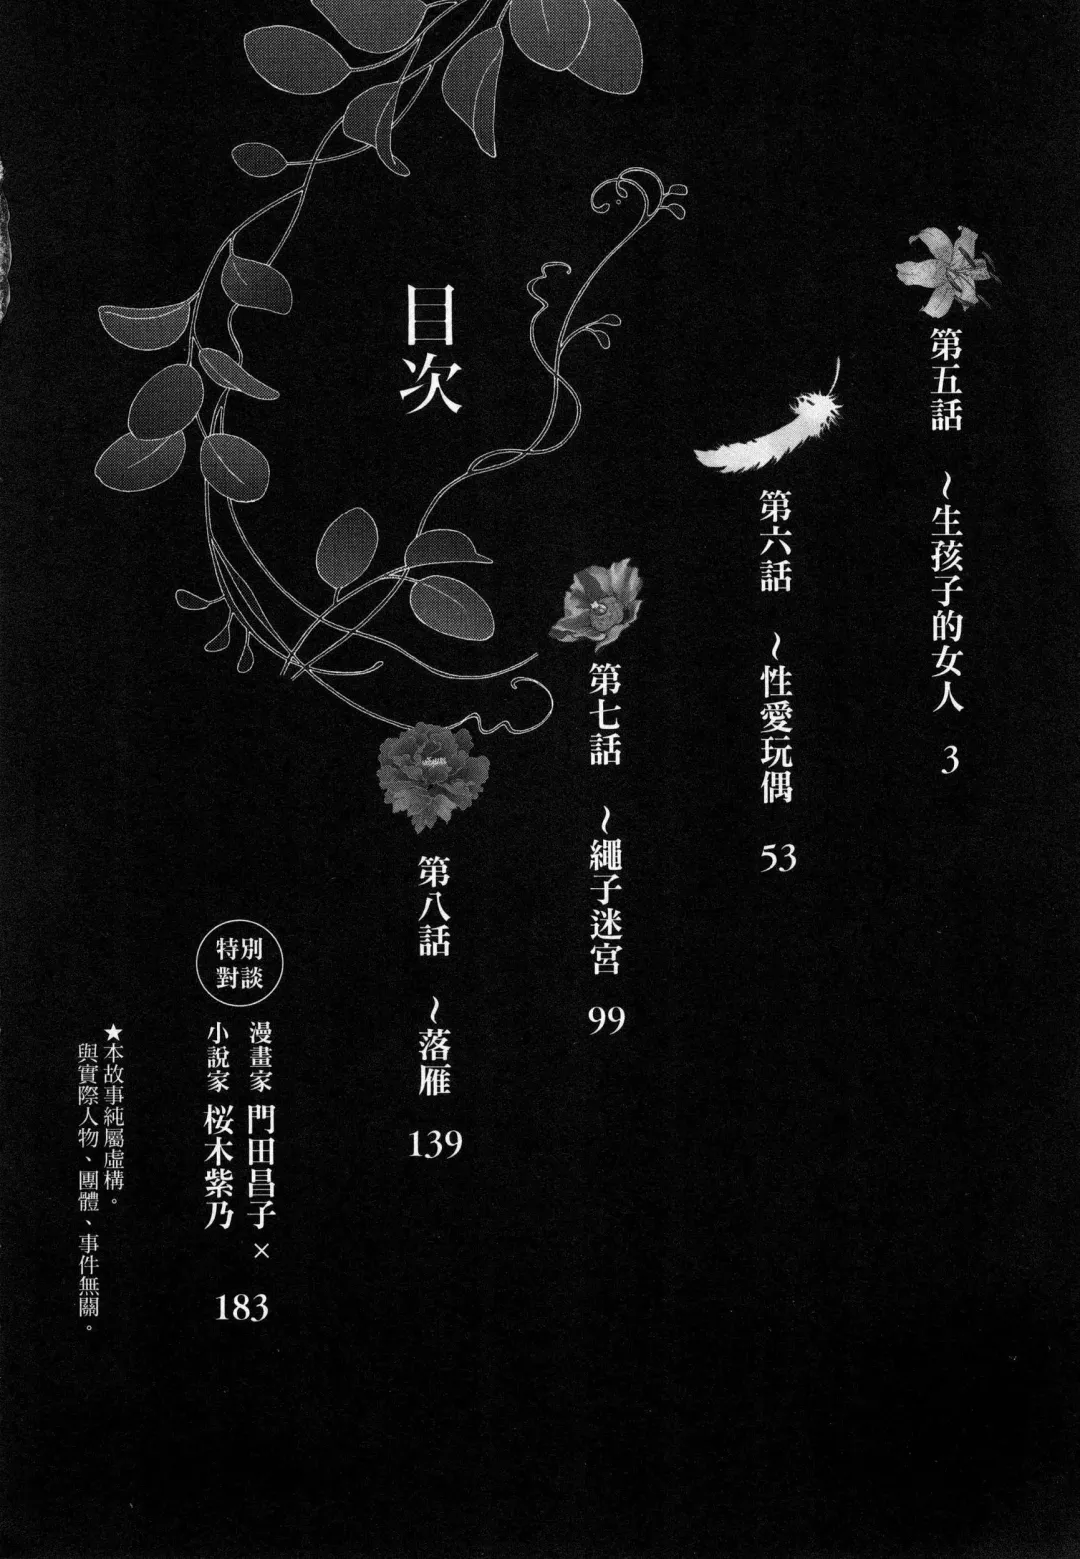 目次
第五話 ~生孩子的女人 3
第六話 ~性愛玩偶 53
第七話 ~繩子迷宮 99
第八話 ~落雁 139
特別
對談
漫畫家 門田昌子×
小說家 桜木紫乃
183
★本故事純屬虛構。
與實際人物、團體、事件無關。